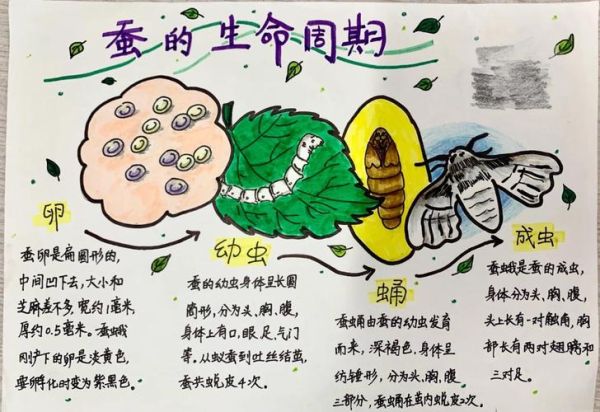 蚕的生命周期
卵
蚕卵是扁圆形的,
中间凹下去,大小和
芝麻差不多,宽约1毫米,
厚约0.5毫米。蚕蛾
刚产下的卵是淡黄色,
要孵化时变为紫黑色。
幼虫
蚕的幼虫身体呈长圆
筒形,分为头、胸、腹,
身体上有口、眼、足、气门
等,从蚁蚕到吐丝结茧,
蚕共蜕皮4次。
蛹
蚕蛹由蚕的幼虫发育
而来,深褐色,身体呈
纺锤形,分为头、胸、腹
三部分,蚕蛹在茧内蜕皮2次。
成虫
蚕蛾是蚕的成虫,
身体分为头、胸、腹,
头上长有一对触角,胸
部长有两对翅膀和
三对足。